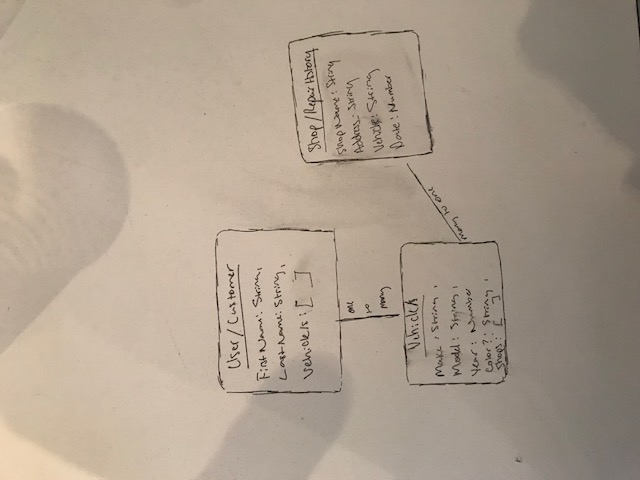 User/Customer
First Name: String,
Last Name: String,
Vehicle/s: [ ]
one
to
many
Vehicle/s
Make: String,
Model: String,
Year: Number
Color?: String,
Shops: [ ]
many to one
Shop/Repair History
Shop Name: String
Address: String
Vehicle: String
Date: Number